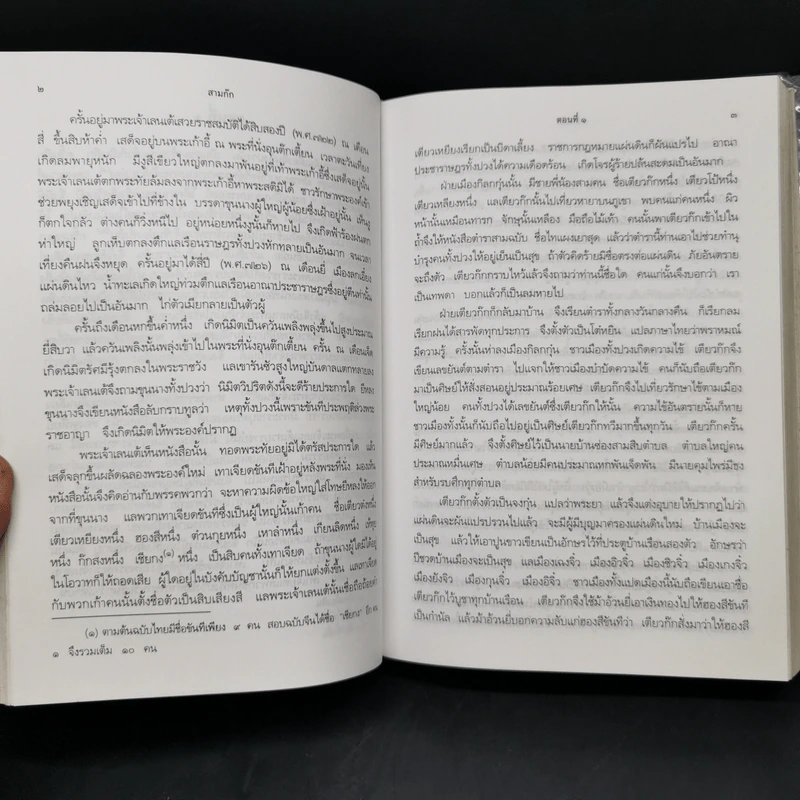 ๒
สามก๊ก
ครั้นอยู่มาพระเจ้าเลนเต้เสวยราชสมบัติได้สิบสองปี (พ.ศ.๗๒๒) ณ เดือน
สี่ ขึ้นสิบห้าค่ำ เสด็จอยู่บนพระเก้าอี้ ณ พระที่นั่งอุนต๊กเตี้ยน เวลาตะวันเที่ยง
เกิดลมพายุหนัก มีงูสีเขียวใหญ่ตกลงมาพันอยู่ที่เท้าพระเก้าอี้ซึ่งเสด็จอยู่นั้น
พระเจ้าเลนเต้ตกพระทัยล้มลงจากพระเก้าอี้หาพระสติมิได้ ชาวรักษาพระองค์เข้า
ช่วยพยุงเชิญเสด็จเข้าไปที่ข้างใน บรรดาขุนนางผู้ใหญ่ผู้น้อยซึ่งเฝ้าอยู่นั้น เห็นงู
ก็ตกใจกลัว ต่างคนก็วิ่งหนีไป อยู่หน่อยหนึ่งงูนั้นก็หายไป จึงเกิดฟ้าร้องฝนตก
ห่าใหญ่ ลูกเห็บตกลงตึกแลเรือนราษฎรทั้งปวงหักทลายเป็นอันมาก จนเวลา
เที่ยงคืนฝนจึงหยุด ครั้นอยู่มาได้สี่ปี (พ.ศ.๗๒๖) ณ เดือนยี่ เมืองลกเอี๋ยง
แผ่นดินไหว น้ำทะเลเกิดใหญ่ท่วมตึกแลเรือนอาณาประชาราษฎรซึ่งอยู่ตีนท่านั้น
ถล่มลอยไปเป็นอันมาก ไก่ตัวเมียกลายเป็นตัวผู้
ครั้นถึงเดือนหกขึ้นค่ำหนึ่ง เกิดนิมิตเป็นควันเพลิงพลุ่งขึ้นไปสูงประมาณ
ยี่สิบวา แล้วควันเพลิงนั้นพลุ่งเข้าไปในพระที่นั่งอุนต๊กเตี้ยน ครั้น ณ เดือนเจ็ด
เกิดนิมิตรัศมีรุ้งตกลงในพระราชวัง แลเขารันซัวสูงใหญ่บันดาลแตกทลายลง
พระเจ้าเลนเต้จึงถามขุนนางทั้งปวงว่า นิมิตวิปริตดังนี้จะดีร้ายประการใด ยีหลง
ขุนนางจึงเขียนหนังสือลับกราบทูลว่า เหตุทั้งปวงนี้เพราะขันทีประพฤติล่วงพระ
ราชอาญา จึงเกิดนิมิตให้พระองค์ปรากฏ
พระเจ้าเลนเต้เห็นหนังสือนั้น ทอดพระทัยอยู่มิได้ตรัสประการใด แล้ว
เสด็จลุกขึ้นผลัดฉลองพระองค์ใหม่ เทาเจียดขันทีเฝ้าอยู่หลังพระที่นั่ง มองเห็น
หนังสือนั้นจึงคิดอ่านกับพรรคพวกว่า จะหาความผิดข้อใหญ่ใส่โทษยีหลงให้ออก
จากที่ขุนนาง แลพวกเทาเจียดขันทีซึ่งเป็นผู้ใหญ่นั้นเก้าคน ชื่อเตียวต๋งหนึ่ง
เตียวเหยียงหนึ่ง ฮองสีหนึ่ง ต๋วนกุยหนึ่ง เหาลำหนึ่ง เกียนสิดหนึ่ง
หนึ่ง ก๊กสงหนึ่ง เชียกง(๑) หนึ่ง เป็นสิบคนทั้งเทาเจียด ถ้าขุนนางผู้ใดมิได้อยู่
ในโอวาทก็ให้ถอดเสีย ผู้ใดอยู่ในบังคับบัญชานั้นก็ให้ยกแต่งตั้งขึ้น แลเทาเจียด
กับพวกเก้าคนนั้นตั้งชื่อตัวเป็นสิบเสียงสี แลพระเจ้าเลนเต้นั้นเชื่อถือถ้อยคำ
(๑) ตามต้นฉบับไทยมีชื่อขันทีเพียง ๙ คน สอบฉบับจีนได้ชื่อ "เชียกง" อีก
๑ จึงรวมเต็ม ๑๐ คน
ตอนที่ ๑
๓
เตียวเหยียงเรียกเป็นบิดาเลี้ยง ราชการกฎหมายแผ่นดินก็ผันแปรไป อาณา
ประชาราษฎรทั้งปวงได้ความเดือดร้อน เกิดโจรผู้ร้ายปล้นสะดมเป็นอันมาก
ฝ่ายเมืองกิลกกุ๋นนั้น มีชายพี่น้องสามคน ชื่อเตียวก๊กหนึ่ง เตียวโป้หนึ่ง
เตียวเหลียงหนึ่ง แลเตียวก๊กนั้นไปเที่ยวหายาบนภูเขา พบคนแก่คนหนึ่ง ผิว
หน้านั้นเหมือนทารก จักษุนั้นเหลือง มือถือไม้เท้า คนนั้นพาเตียวก๊กเข้าไปใน
ถ้ำจึงให้หนังสือตำราสามฉบับ ชื่อไทแผงเยาสุด แล้วว่าตำรานี้ท่านเอาไปช่วยทำนุ
บำรุงคนทั้งปวงให้อยู่เย็นเป็นสุข ถ้าตัวคิดร้ายมิซื่อตรงต่อแผ่นดิน ภัยอันตราย
จะถึงตัว เตียวก๊กกราบไหว้แล้วจึงถามว่าท่านนี้ชื่อใด คนแก่นั้นจึงบอกว่า เรา
เป็นเทพดา บอกแล้วก็เป็นลมหายไป
ฝ่ายเตียวก๊กก็กลับมาบ้าน จึงเรียนตำราทั้งกลางวันกลางคืน ก็เรียกลม
เรียกฝนได้สารพัดทุกประการ จึงตั้งตัวเป็นโต๋หยิน แปลภาษาไทยว่าพราหมณ์
มีความรู้ ครั้งนั้นห่าลงเมืองกิลกกุ๋น ชาวเมืองทั้งปวงเกิดความไข้ เตียวก๊กจึง
เขียนเลขยันต์ตามตำรา ไปแจกให้ชาวเมืองบำบัดความไข้ คนก็นับถือเตียวก๊ก
มาเป็นศิษย์ให้สั่งสอนอยู่ประมาณร้อยเศษ เตียวก๊กจึงไปเที่ยวรักษาไข้ตามเมือง
ใหญ่น้อย คนทั้งปวงได้เลขยันต์ซึ่งเตียวก๊กให้นั้น ความไข้อันตรายนั้นก็หาย
ชาวเมืองทั้งนั้นก็นับถือไปอยู่เป็นศิษย์เตียวก๊กทวีมากขึ้นทุกวัน เตียวก๊กครั้น
มีศิษย์มากแล้ว จึงตั้งศิษย์ไว้เป็นนายบ้านซ่องสามสิบตำบล ตำบลใหญ่คน
ประมาณหมื่นเศษ ตำบลน้อยมีคนประมาณหกพันเจ็ดพัน มีนายคุมไพร่มีธง
สำหรับรบศึกทุกตำบล
เตียวก๊กตั้งตัวเป็นจงกุ๋น แปลว่าพระยา แล้วจึงแต่งอุบายให้ปรากฏไปว่า
แผ่นดินจะผันแปรปรวนไปแล้ว จะมีผู้มีบุญมาครองแผ่นดินใหม่ บ้านเมืองจะ
เป็นสุข แล้วให้เอาปูนขาวเขียนเป็นอักษรไว้ที่ประตูบ้านเรือนสองตัว อักษรว่า
ปีชวดบ้านเมืองจะเป็นสุข แลเมืองเฉงจิ๋ว เมืองอิวจิ๋ว เมืองชิวจิ๋ว เมืองเกงจิ๋ว
เมืองยังจิ๋ว เมืองกุนจิ๋ว เมืองอิจิ๋ว ชาวเมืองทั้งแปดเมืองนี้นับถือเขียนเอาชื่อ
เตียวก๊กไว้บูชาทุกบ้านเรือน เตียวก๊กจึงใช้ม้าอ้วนยี่เอาเงินทองไปให้ฮองสีขันที
เป็นกำนัล แล้วม้าอ้วนยี่บอกความลับแก่ฮองสีขันทีว่า เตียวก๊กสั่งมาว่าให้ฮองสี